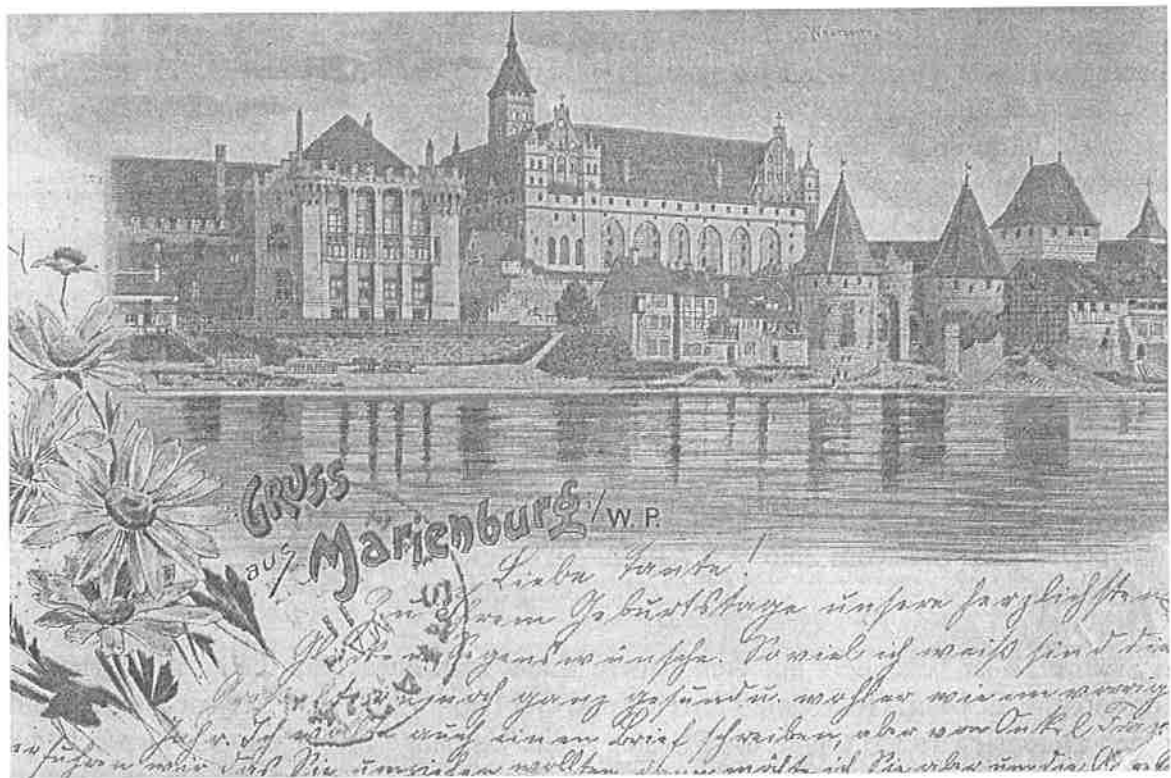 GRUSS
aus Marienburg i/W.P.
Liebe Tante!
Zu Ihrem Geburtstage unsere herzlichsten
Glück u. Segenswünsche. Soviel ich weiß sind die
noch ganz gesund u. wohler wie im vorigen
Jahr. Ich auch einen Brief schreiben, aber von Onkel
erfuhren wir das Sie umziehen wollten, dann Sie aber um die